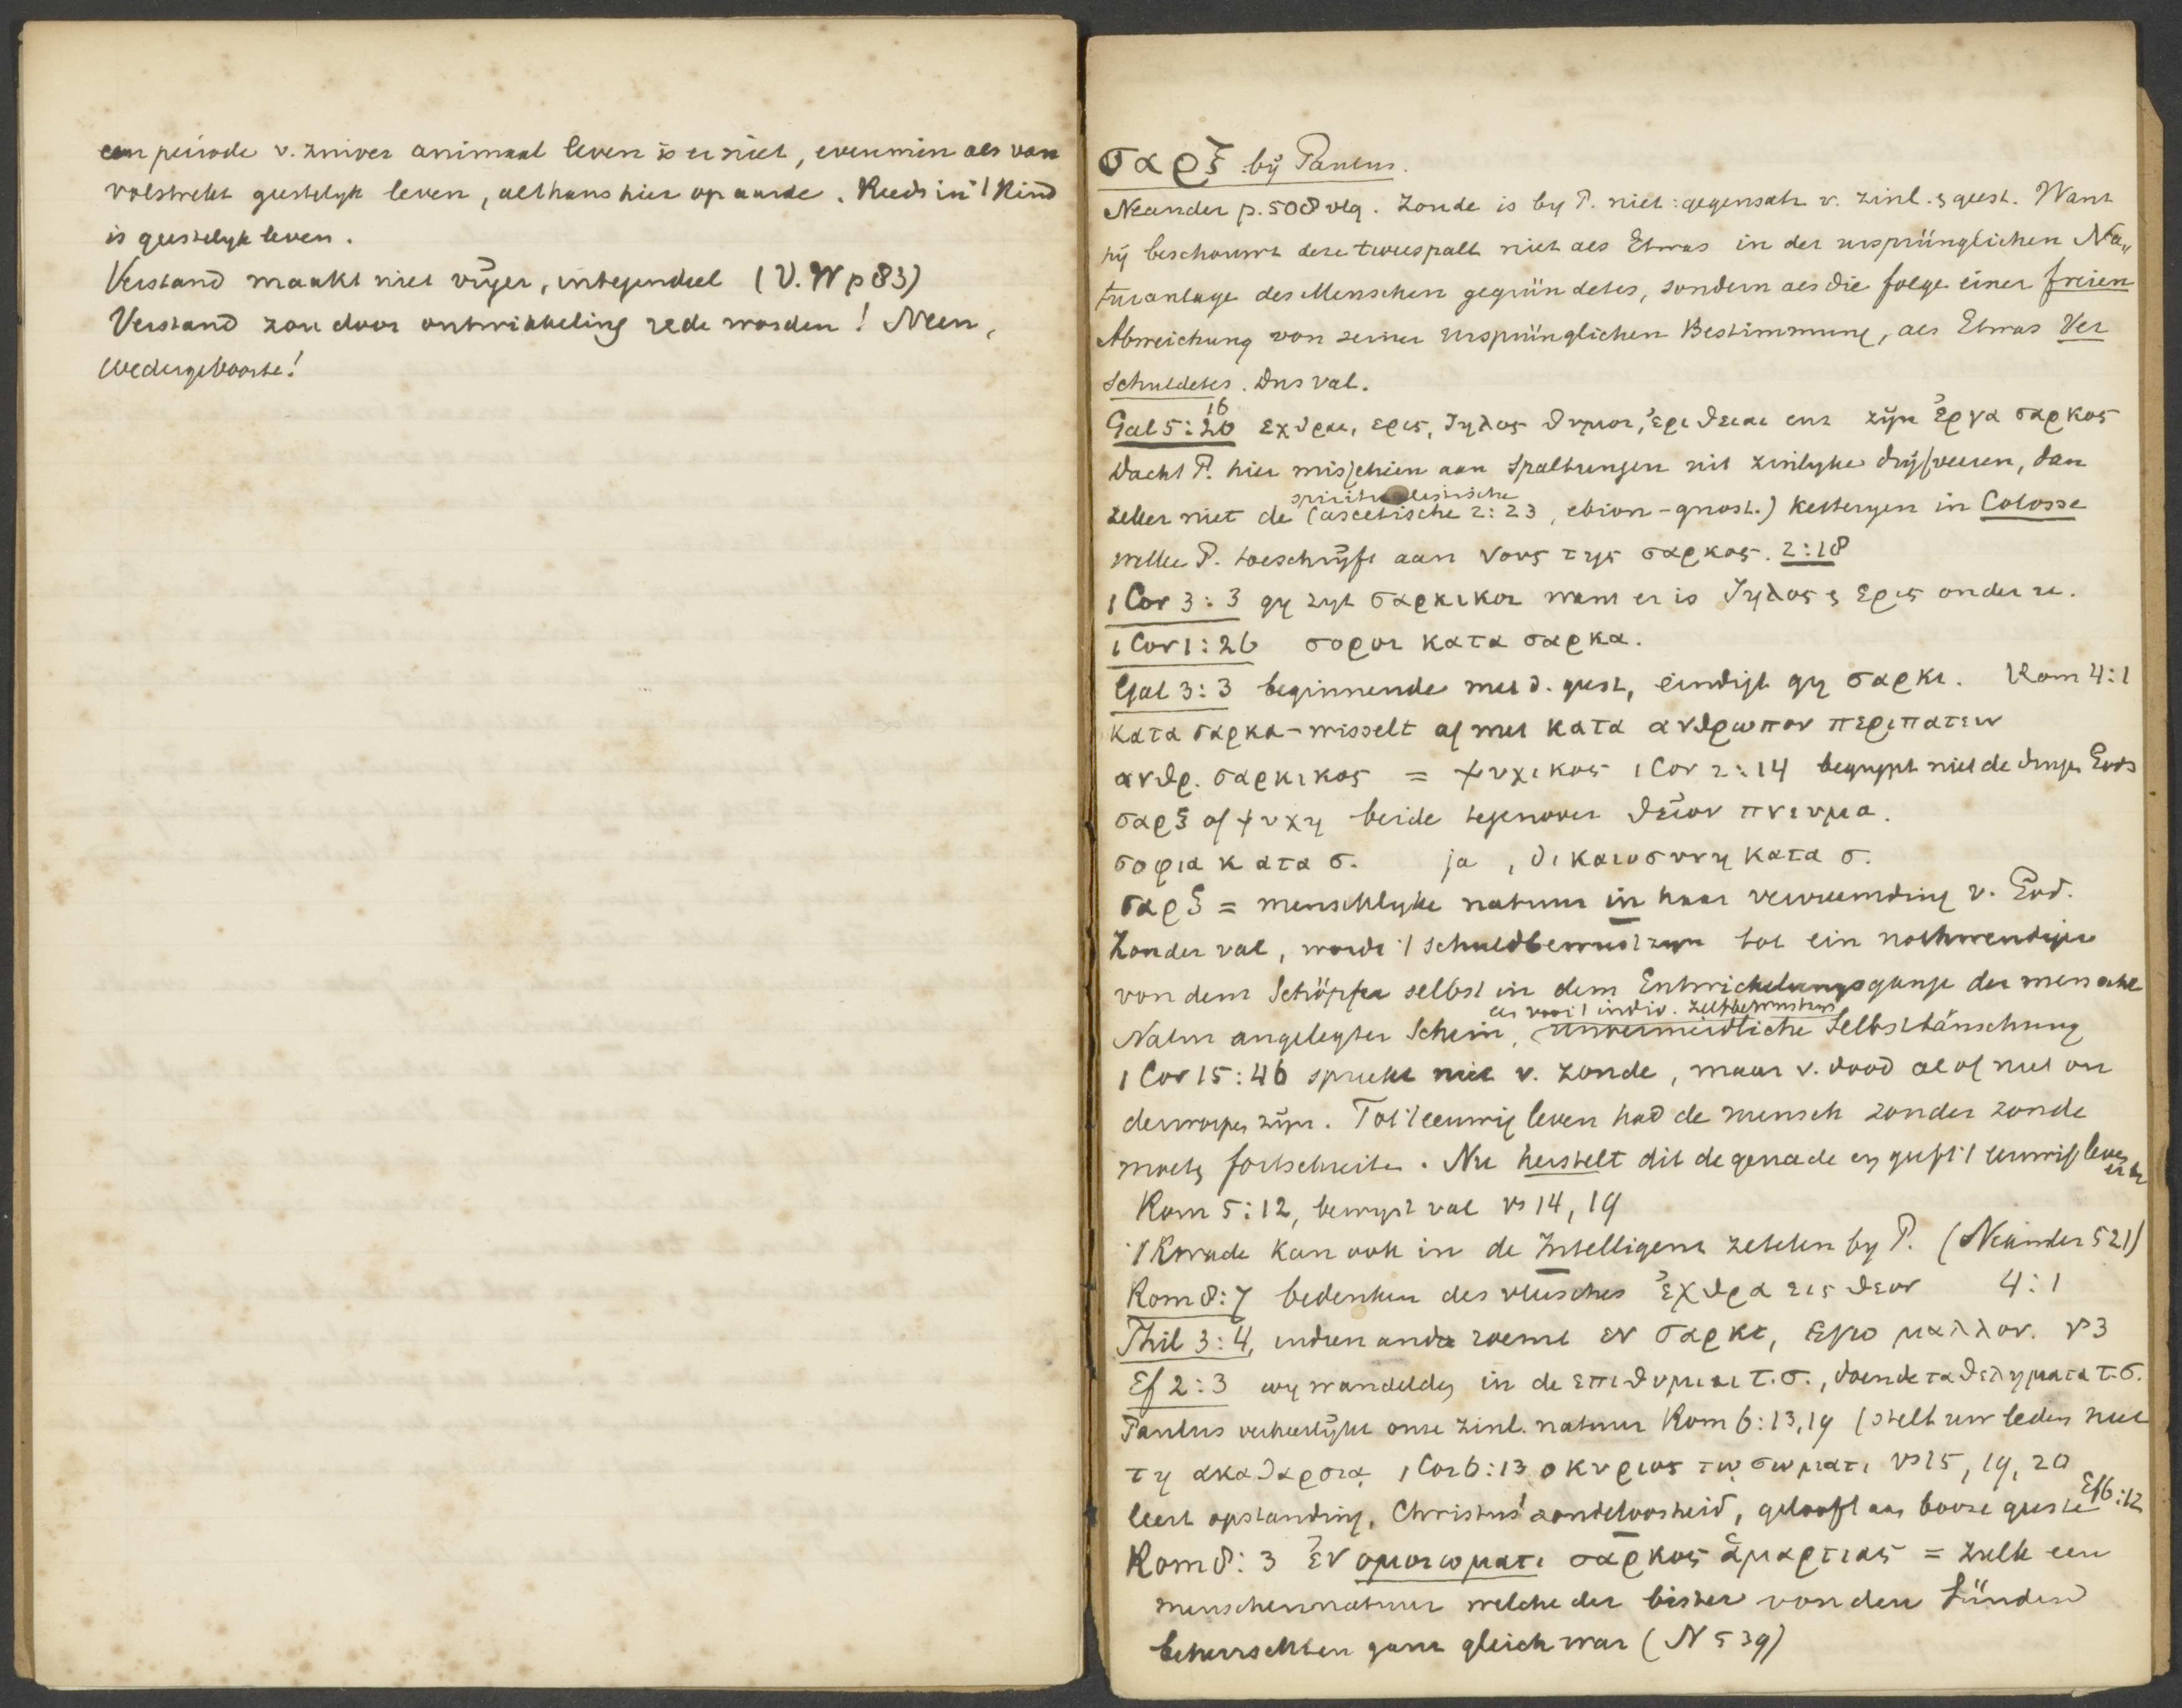 een periode v. zuiver animaal leven is er niet, evenmin als van
volstrekt geestelyk leven, althans hier op aarde. Reeds in 't Kind
is geestelyk leven.
Verstand maakt niet vrijer, integendeel (V. W p 83)
Verstand zou door ontwikkeling rede worden! Neen,
wedergeboorte!
σαρξ bij Paulus.
Neander p. 508 vlg. Zonde is by P. niet: gegensatz v. zinl. & geest. Want
hij beschouwt deze tweespalt niet als Etwas in der ursprünglichen Na„
turanlage des Menschen gegründetes, sondern als die folge einer freien
Abweichung von seiner ursprünglichen Bestimmung, als Etwas Ver
schuldetes. Dus val.
Gal 5: 20 16 εχθραι, ερις, ζηλος θυμοι, ἐριθειαι enz zijn ἐργα σαρκος
Dacht P. hier misschien aan Spaltungen uit zinlyke drijfveeren, dan
zeker niet de spiritualistische (ascetische 2: 23, ebion-gnost.) Ketteryen in Colosse
welke P. toeschrijft aan νους της σαρκος. 2:18
1 Cor 3: 3 gy zyt σαρκικοι want er is ζηλος & ερις onder u.
1 Cor 1: 26 σοφοι κατα σαρκα.
Gal 3: 3 beginnende met d. geest, eindigt gy σαρκι. Rom 4:1
κατα σαρκα - wisselt af met κατα ανθρωπον περιπατειν
ανθρ. σαρκικος = ψυχικος 1 Cor 2: 14 begrypt niet de dingen Gods
σαρξ of ψυχη beide tegenover θεῖον πνευμα.
σοφια κατα σ. ja, δικαιοσυνη κατα σ.
σαρξ = menschlyke natuur in haar vervreemding v. God.
Zonder val, wordt 't schuldbewustzyn tot ein nothwendiger
von dem Schöpfer selbst in dem Entwickelungsgange der menschl
Natur angelegter Schein, unvermeidliche Selbsttäuschung
er voor 't indiv. zelfbewustzyn
1 Cor 15: 46 spreekt niet v. zonde, maar v. dood al of niet on
derworpen zijn. Tot 't eeuwig leven had de mensch zonder zonde
moeten fortschreiten. Nu herstelt dit de genade en geeft 't eeuwig leven
Rom 5: 12, bewyst val vs 14, 19
't Kwade kan ook in de Intelligenz zetelen by P. (Neander 521)
Rom 8: 7 bedenken des vleesches ἐχθρα εις θεον 4: 1
Phil 3: 4, indien ander roemt εν σαρκι, εγω μαλλον. vs 3
Ef 2: 3 wy wandelden in de επιθυμιαι τ. σ., doende τα θεληματα τ. σ.
Paulus verheerlijkt onze zinl. natuur Rom 6: 13, 19 (stelt uw leden niet
τη ακαθαρσιᾳ, 1 Cor 6: 13 ο κυριος τῳ σωματι vs 15, 19, 20
leert opstanding, Christus' zondeloosheid, gelooft aan booze geesten Ef 6: 12
Rom 8: 3 ἐν ομοιωματι σαρκος ἁμαρτιας = zulk een
menschennatuur welche der bisher von den Sünden
beherrschten ganz gleich war (N 539)